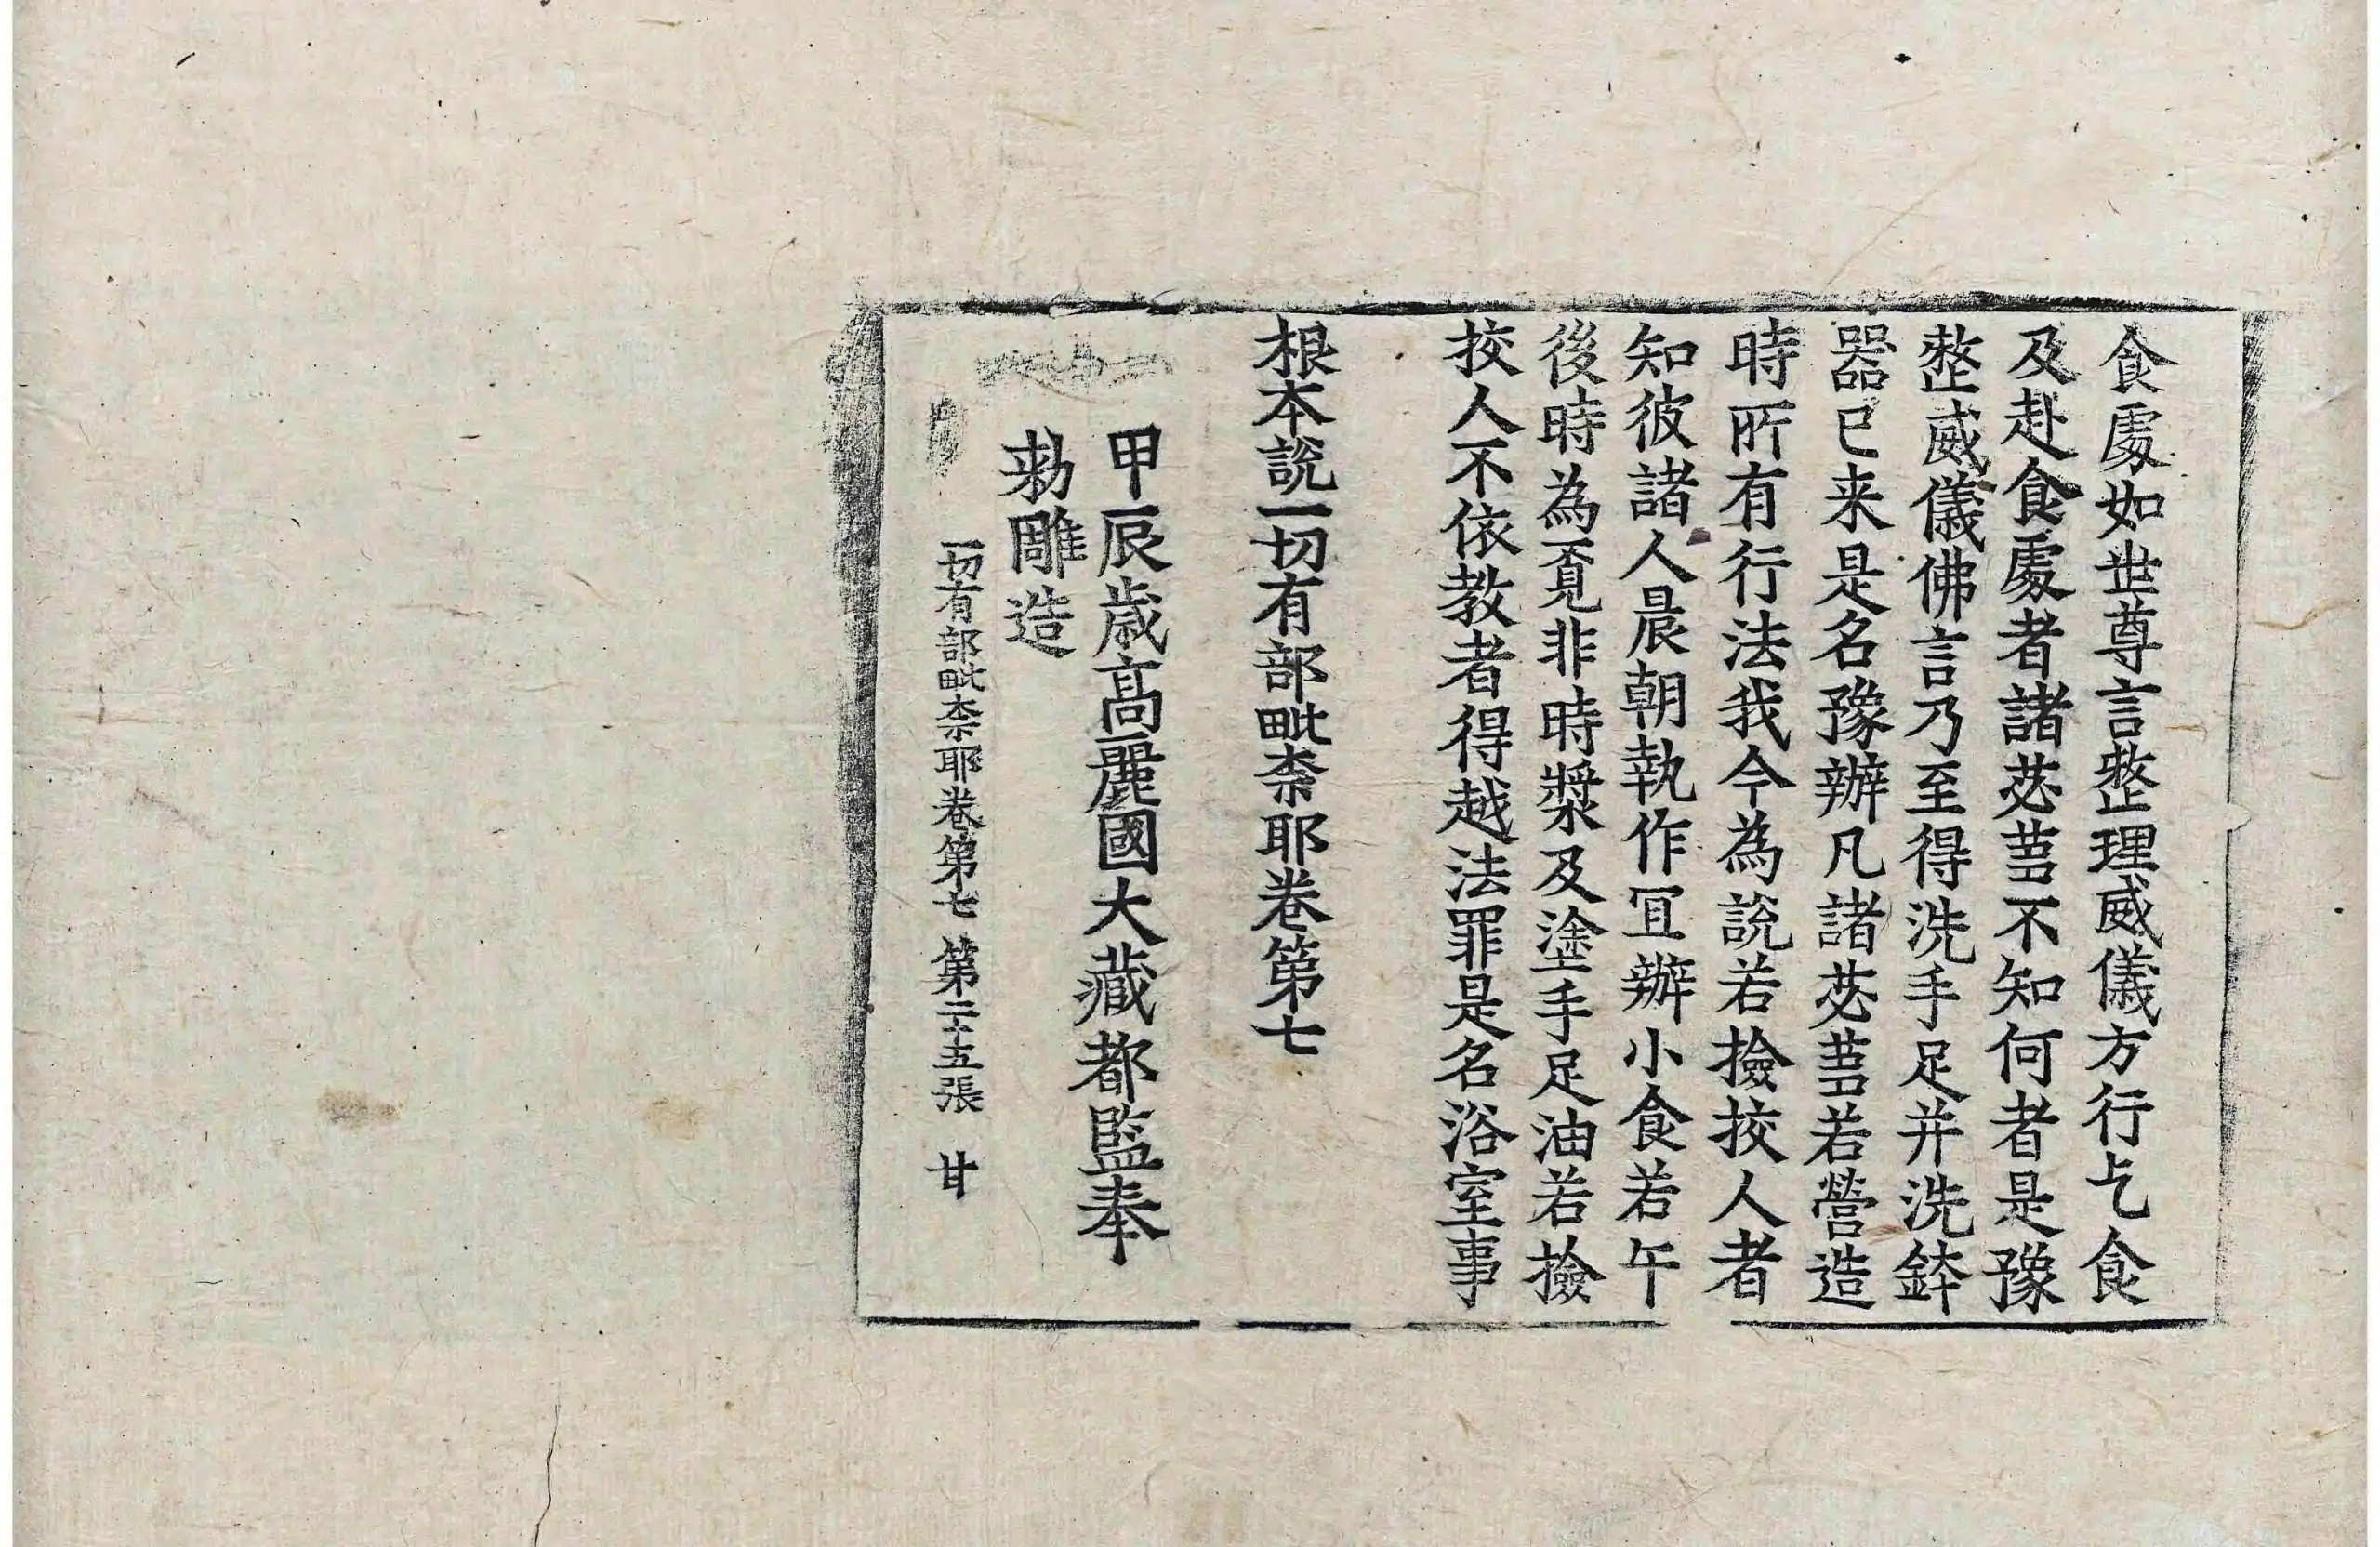 食䖏如丗尊言整理威儀方行乞食
及赴食䖏者諸苾蒭不知何者是豫
整威儀佛言乃至得洗手足并洗鉢
器已来是名豫辦凡諸苾蒭若營造
時所有行法我今為說若撿挍人者
知彼諸人晨朝執作冝辦小食若午
後時為覔非時漿及塗手足油若撿
挍人不依教者得越法罪是名浴室事
根本說一切有部毗柰耶卷第七
甲辰歳高麗國大藏都監奉
勑雕造
一切有部毗柰耶卷第七 第二十五張 甘